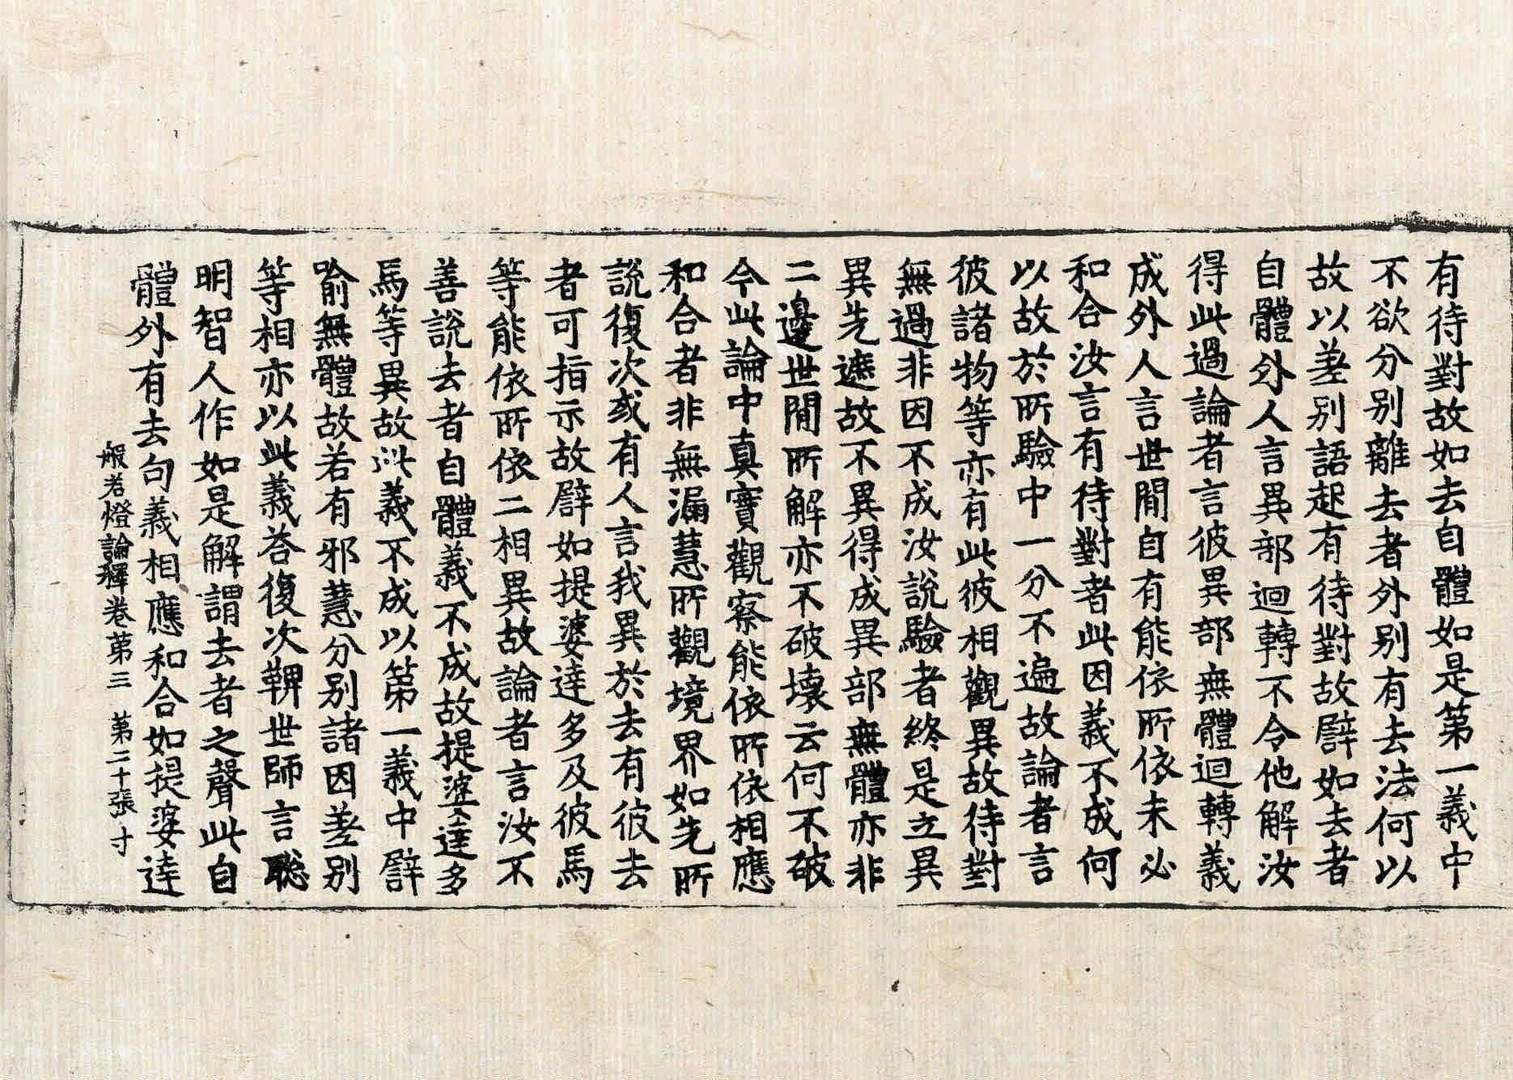 有待對故如去自體如是第一義中
不欲分别離去者外别有去法何以
故以差别語起有待對故譬如去者
自體外人言異部迴轉不令他解汝
得此過論者言彼異部無體迴轉義
成外人言世間自有能依所依未必
和合汝言有待對者此因義不成何
以故於所驗中一分不遍故論者言
彼諸物等亦有此彼相觀異故待對
無過非因不成汝說驗者終是立異
異先遮故不異得成異部無體亦非
二邊世間所解亦不破壞云何不破
今此論中真實觀察能依所依相應
和合者非無漏慧所觀境界如先所
說復次或有人言我異於去有彼去
者可指示故譬如提婆達多及彼馬
等能依所依二相異故論者言汝不
善說去者自體義不成故提婆達多
馬等異故此義不成以第一義中譬
喻無體故若有邪慧分别諸因差别
等相亦以此義荅復次鞞世師言聡
明智人作如是解謂去者之聲此自
體外有去句義相應和合如提婆達
般若燈論釋卷第三　第二十張　寸